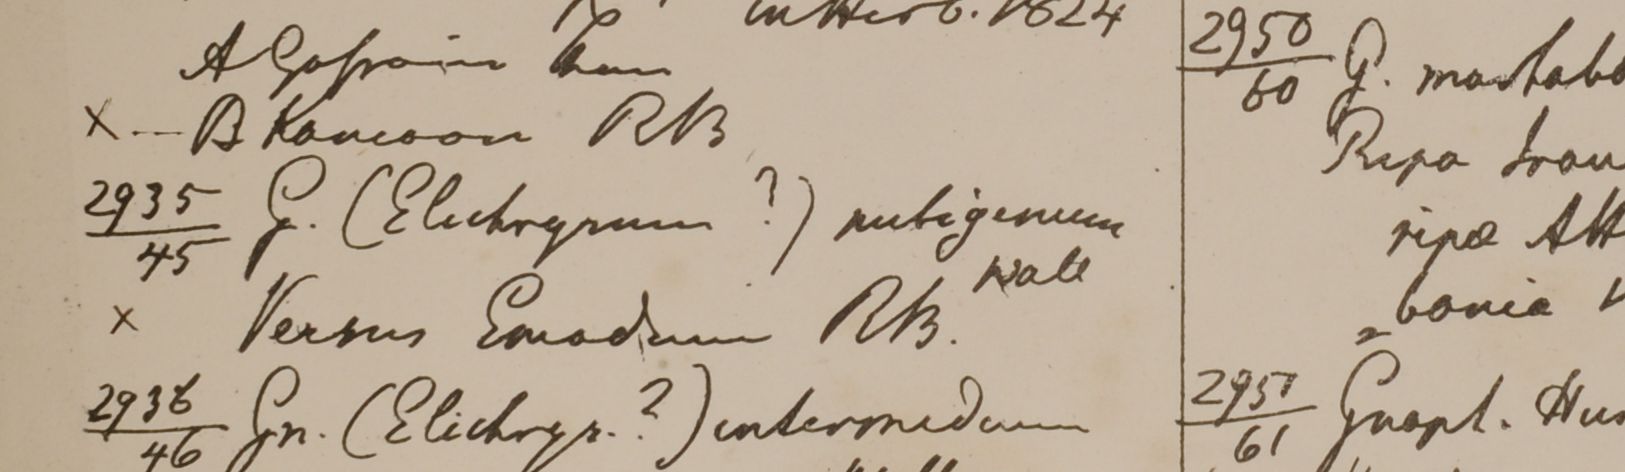 in Herb. 1824
A Gossain Than
x — B Kamaoon RB
2935
45
G. (Elichrysum ?) nubigenum
Wall
x Versus Emodum RB.
2936
46
Gn. (Elichrys. ?) intermedium
2950
60
G.
Ripa
ripæ
2951
61
Gnapl.